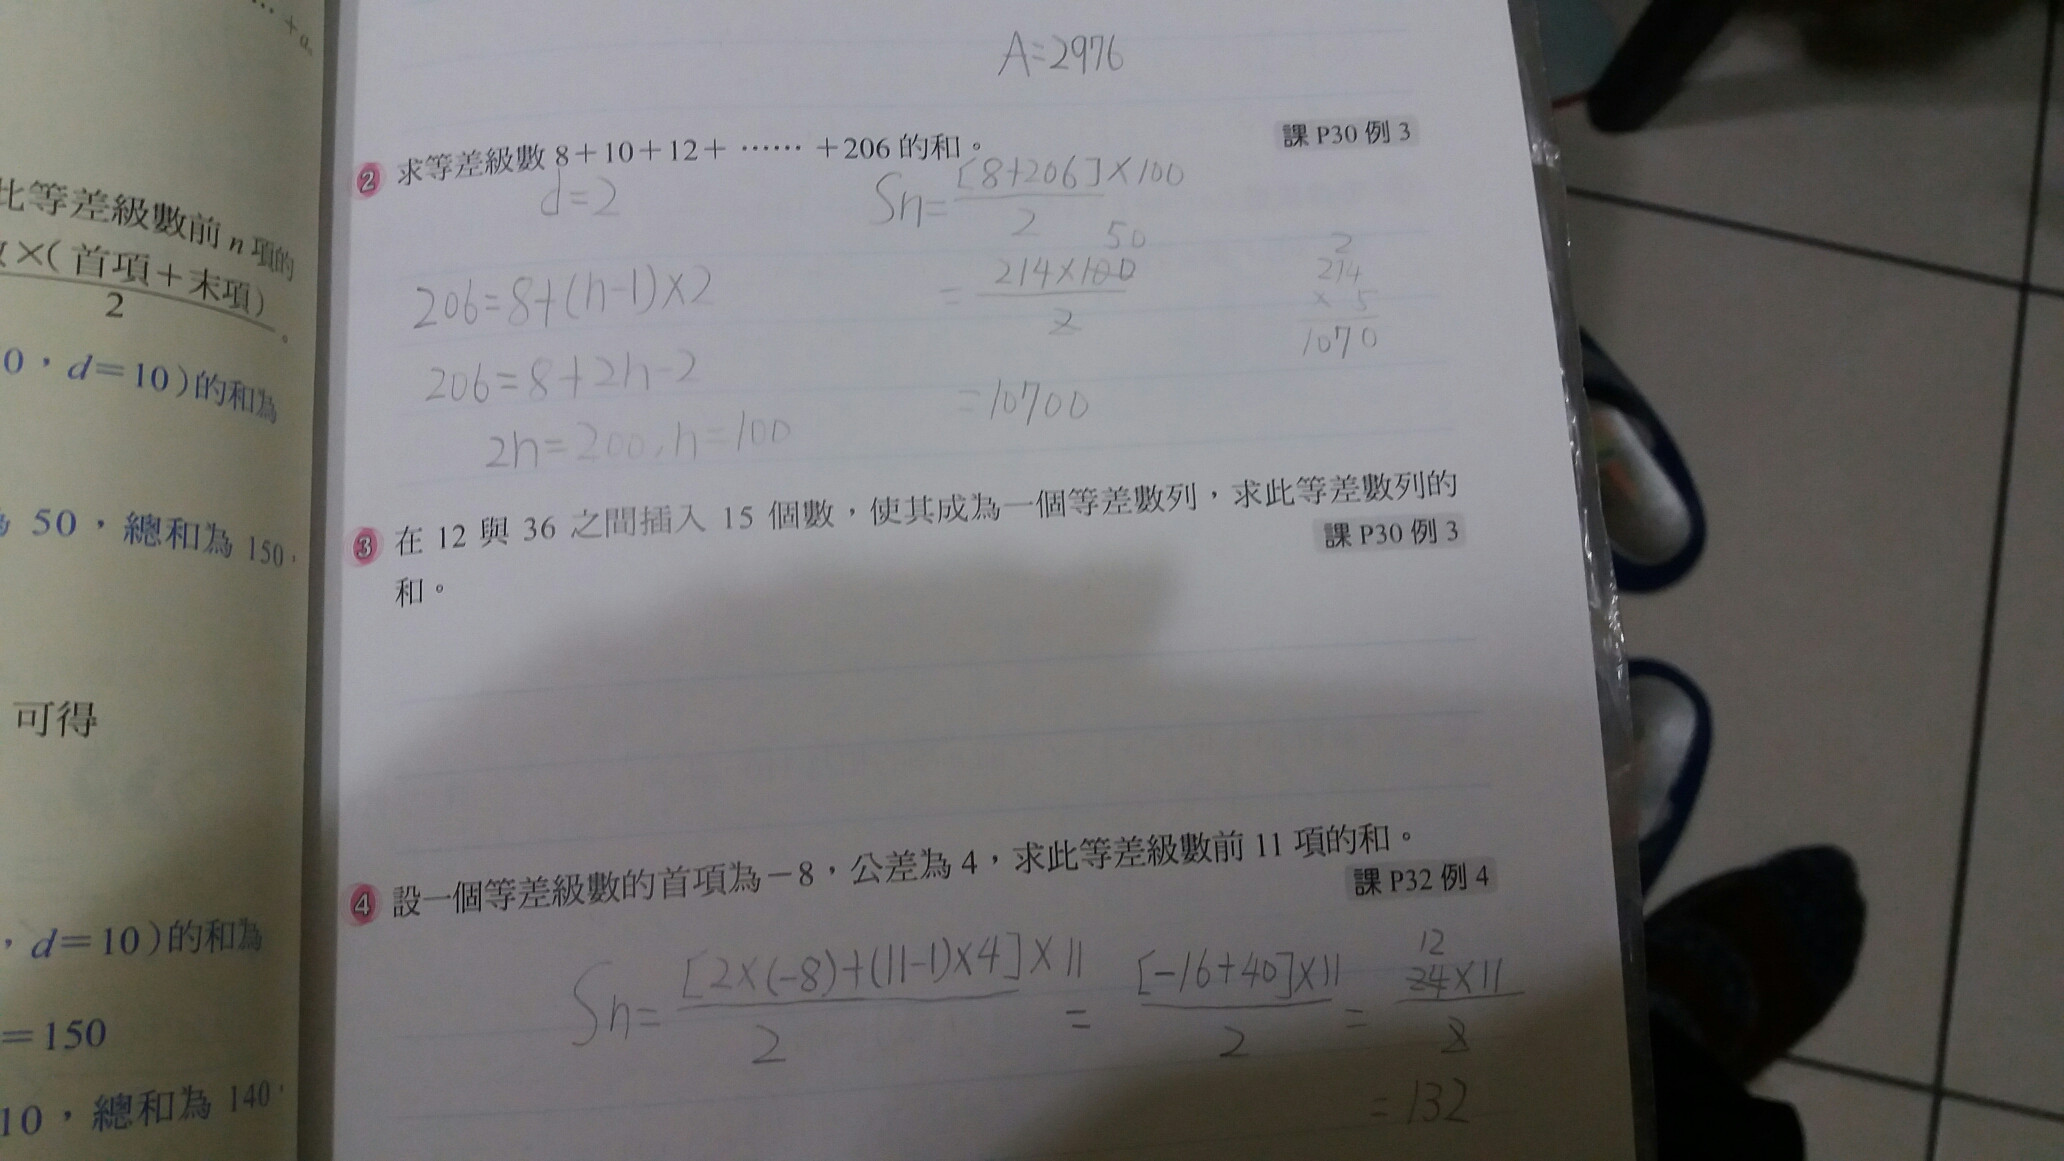 ⋯ + a
此等差級數前 n 項的
×( 首項 + 末項 )
2 。
0,d=10)的和為
50,總和為 150,
可得
,d=10)的和為
=150
10,總和為 140,
A=2976
2 求等差級數 8+10+12+ ⋯⋯ +206 的和。
課 P30 例 3
d=2
Sn= [8+206]×100
2
50
206=8+(n-1)×2
= 214×100
2
2
214
× 5
1070
206=8+2n-2
=10700
2n=200,n=100
3 在 12 與 36 之間插入 15 個數,使其成為一個等差數列,求此等差數列的
和。
課 P30 例 3
4 設一個等差級數的首項為-8,公差為 4,求此等差級數前 11 項的和。
課 P32 例 4
Sn= [2×(-8)+(11-1)×4]×11 = [-16+40]×11 = 24×11
12
2 2 2
=132